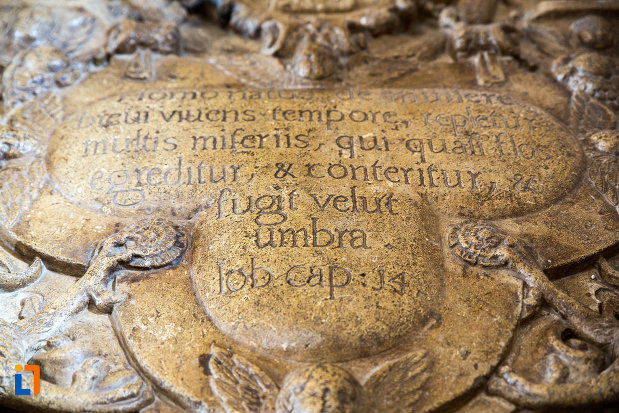 Homo natus de muliere
breui viuens tempore, repletur
multis miseriis, qui quasi flos
egreditur, & conteritur, &
fugit velut
umbra
Iob cap: 14